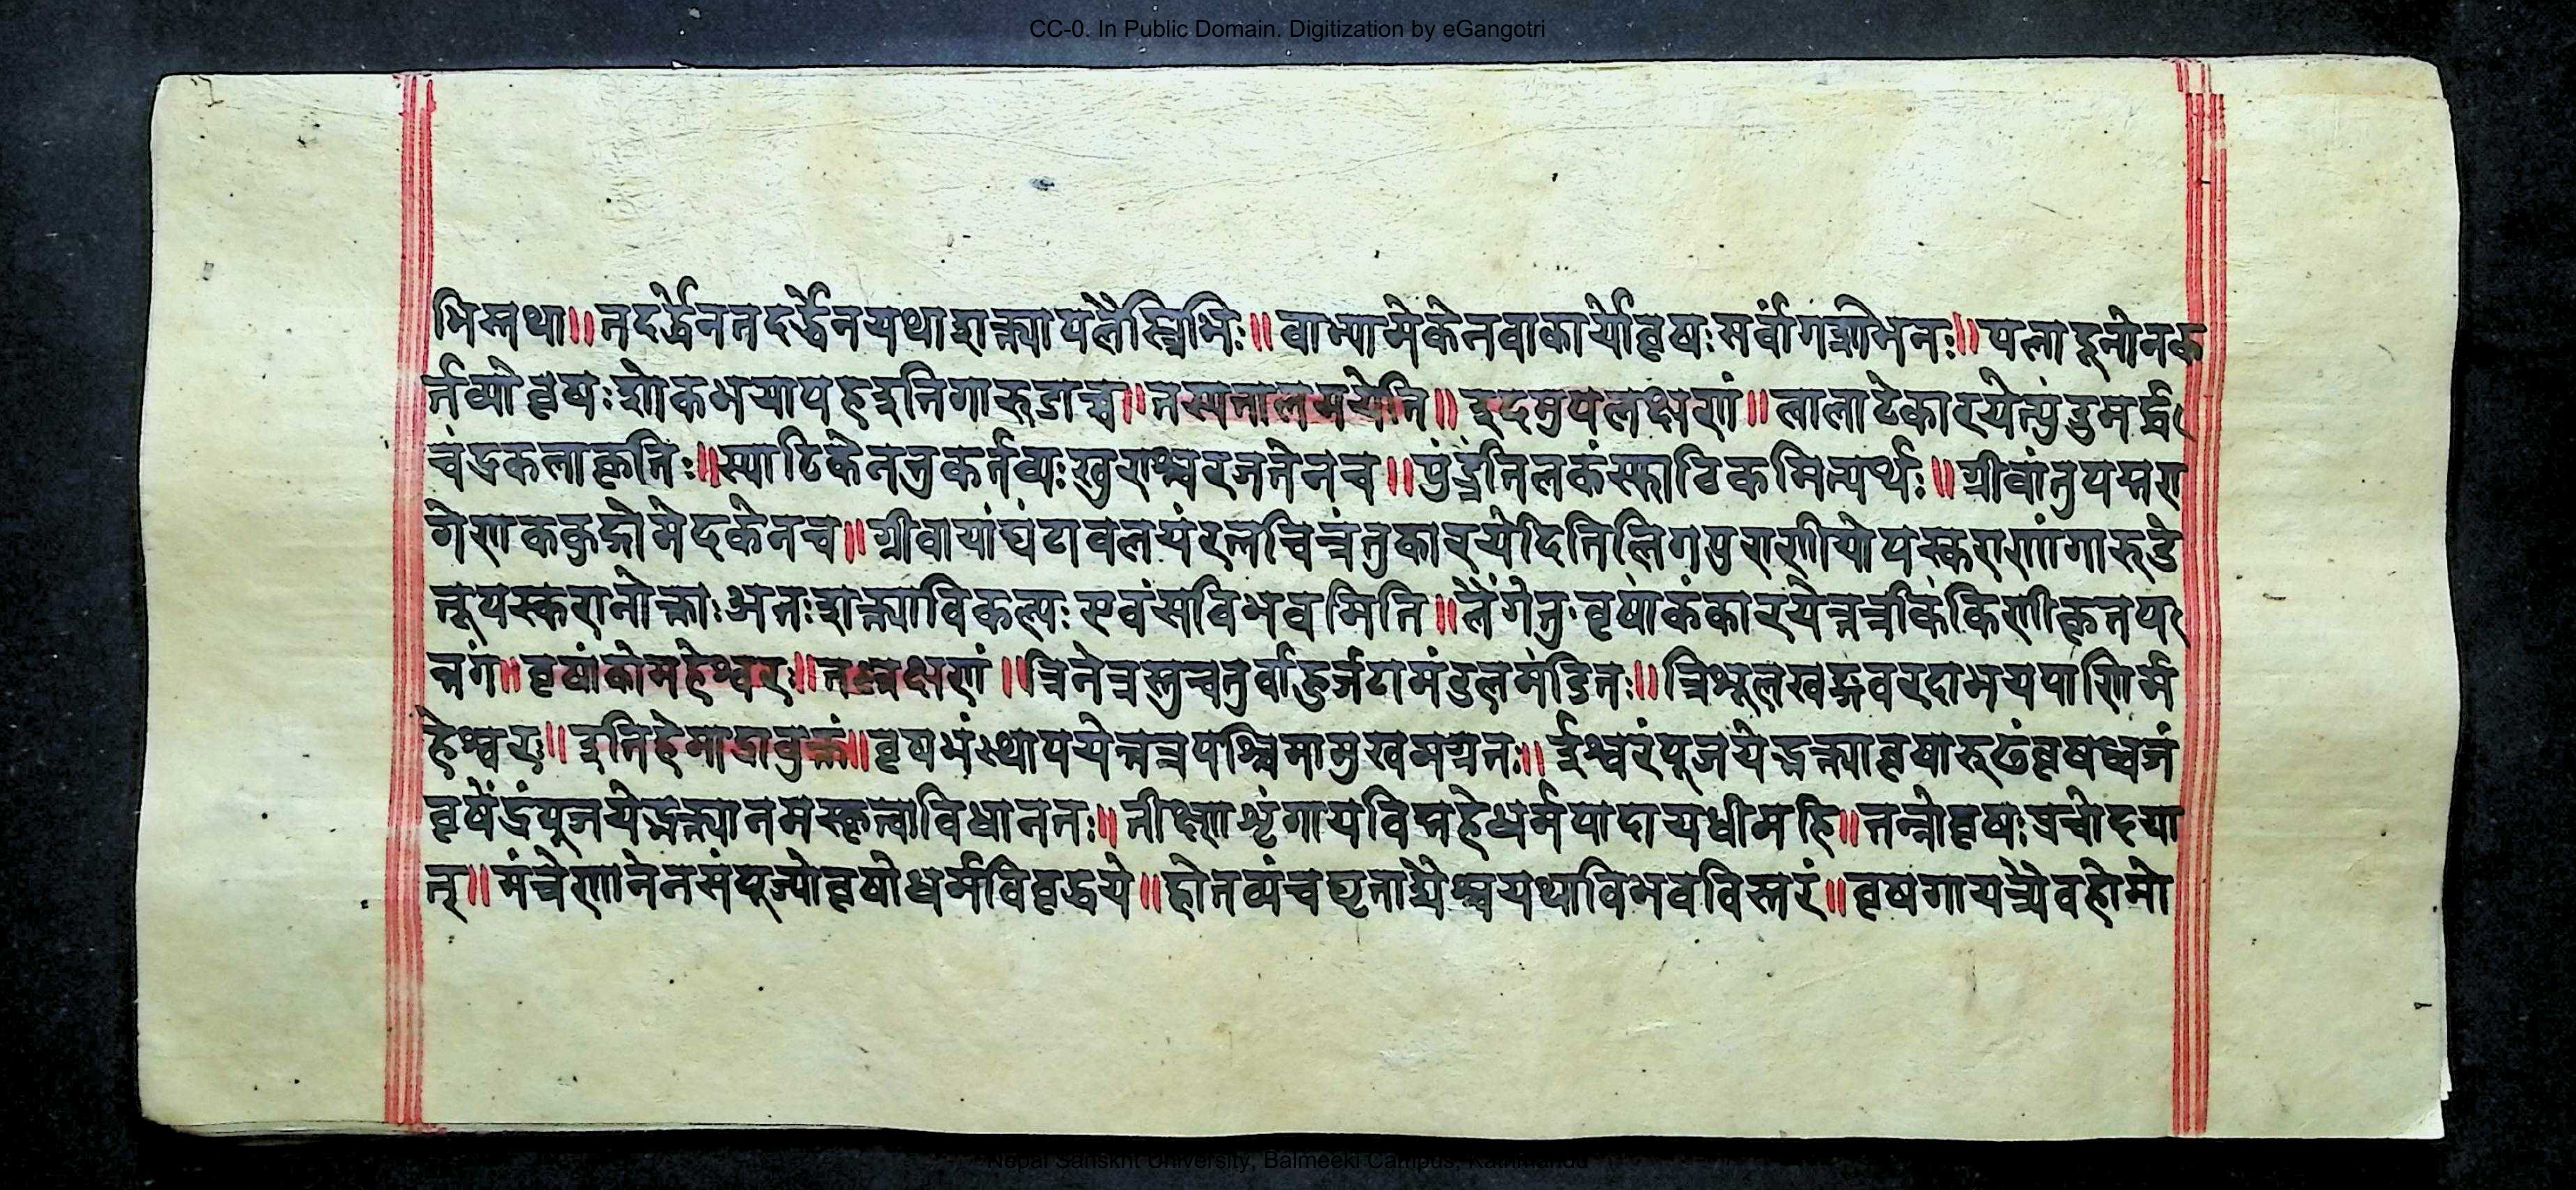 CC-0. In Public Domain. Digitization by eGangotri
भिस्तथा॥तदर्द्धेनतदर्द्धेनयथाशक्त्यापलैस्त्रिभिः॥वाभ्यामेकेनवाकार्योवृषःसर्वांगशोभनः॥पलादूनोनक
र्तव्योवृषःशोकभयापहइतिगारूडाच्च॥तस्यनालमयेति॥इदमुपलक्षणं॥लालाटेकारयेत्पुंड्रमर्द्ध
चंद्रकलाकृति॥स्पाटिकेनतुकर्तव्यःखुराश्चरजतेनच॥पुंड्रंतिलकंस्फाटिकमित्यर्थः॥ग्रीवांतुपद्मरा
गेणककुद्गोमेदकेनच॥ग्रीवायांघंटावलयंरत्नचित्रंतुकारयेदितिलिगपुराणीयोपस्कराणांगारुडे
नूपस्करानोक्ताःअतःशक्त्याविकल्पःएवंसविभवमिति॥लैंगेतु॰वृषांकंकारयेत्तत्रकिंकिणीकृतप
त्रगं॥वृषांकोमहेश्वरः॥तल्लक्षणं॥त्रिनेत्रस्तुचतुर्बाहुर्जटामंडलमंडितः॥त्रिशूलखड्गवरदाभयपाणिर्म
हेश्वरः॥इतिहेमाद्रावुक्तं॥वृषभंस्थापयेत्तत्रपश्चिमामुखमग्रतः॥ईश्वरंपूजयेद्भक्त्यावृषारुढंवृषध्वजं
वृषेंद्रंपूजयेद्भक्त्यानमस्कृत्वाविधानतः॥तीक्ष्णशृंगायविद्महेधर्मपादायधीमहि॥तन्नोवृषःप्रचोदया
त्॥मंत्रेणानेनसंपूज्योवृषोधर्मविवृद्धये॥होतव्यंचघृताद्यैश्चयथाविभवविस्तरं॥वृषगायत्र्यैवहोमो
Nepal Sanskrit University, Balmeeki Campus, Kathmandu